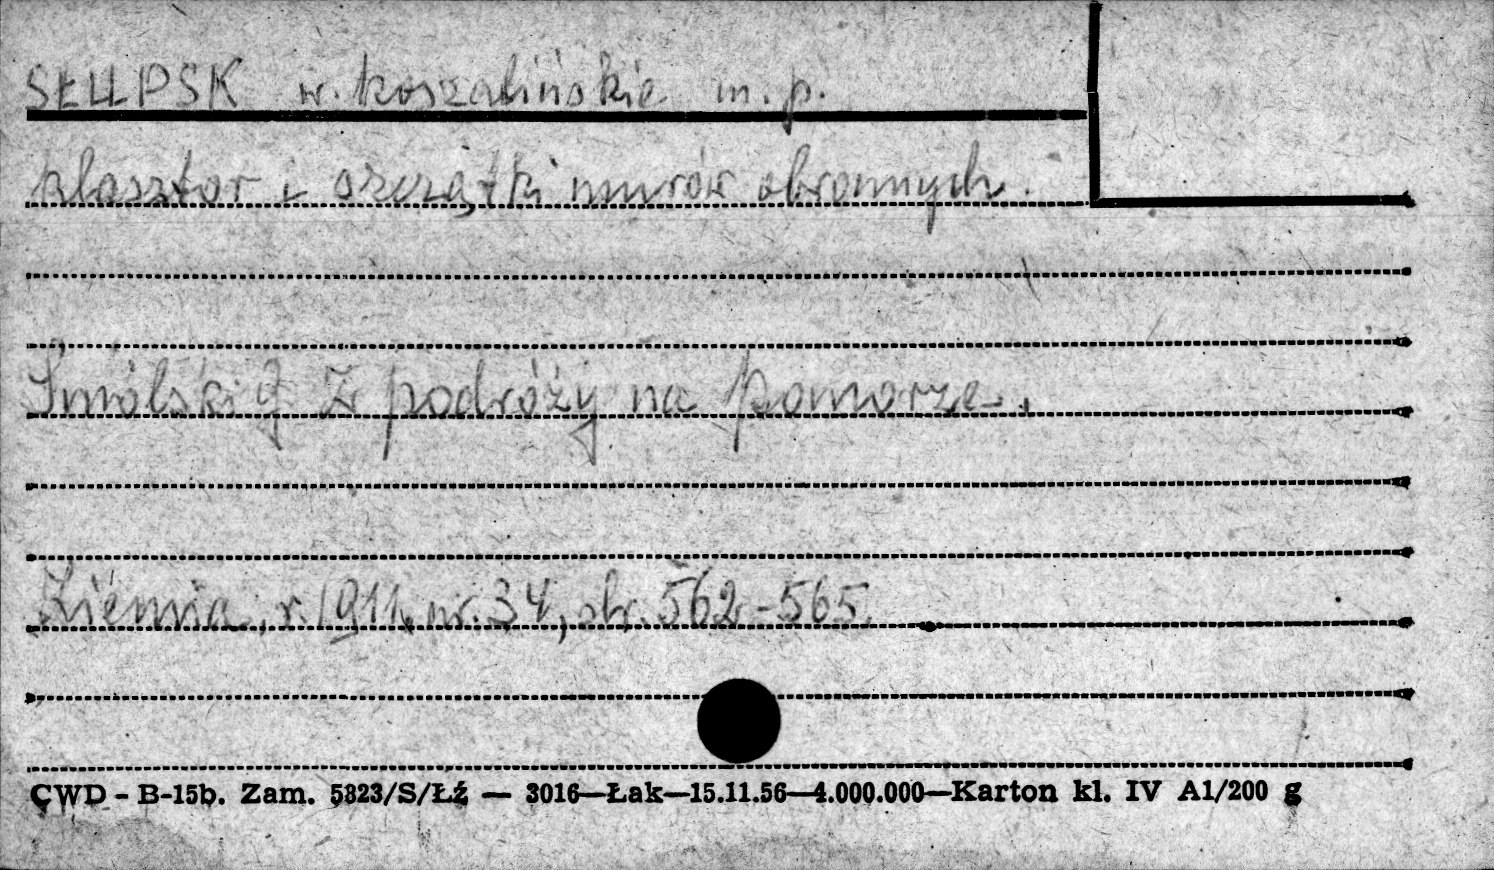 SŁUPSK w. koszalińskie m. p.
klasztor i szczątki murów obronnych.
Smólski G. Z podróży na Pomorze.
Ziemia, r. 1911, nr. 34, str. 562-565
CWD - B-15b. Zam. 5323/S/Łź — 3016—Łak—15.11.56—4.000.000—Karton kl. IV A1/200 g